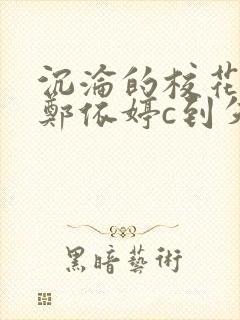 沉淪的校花
鄭依婷c到
黑暗藝術